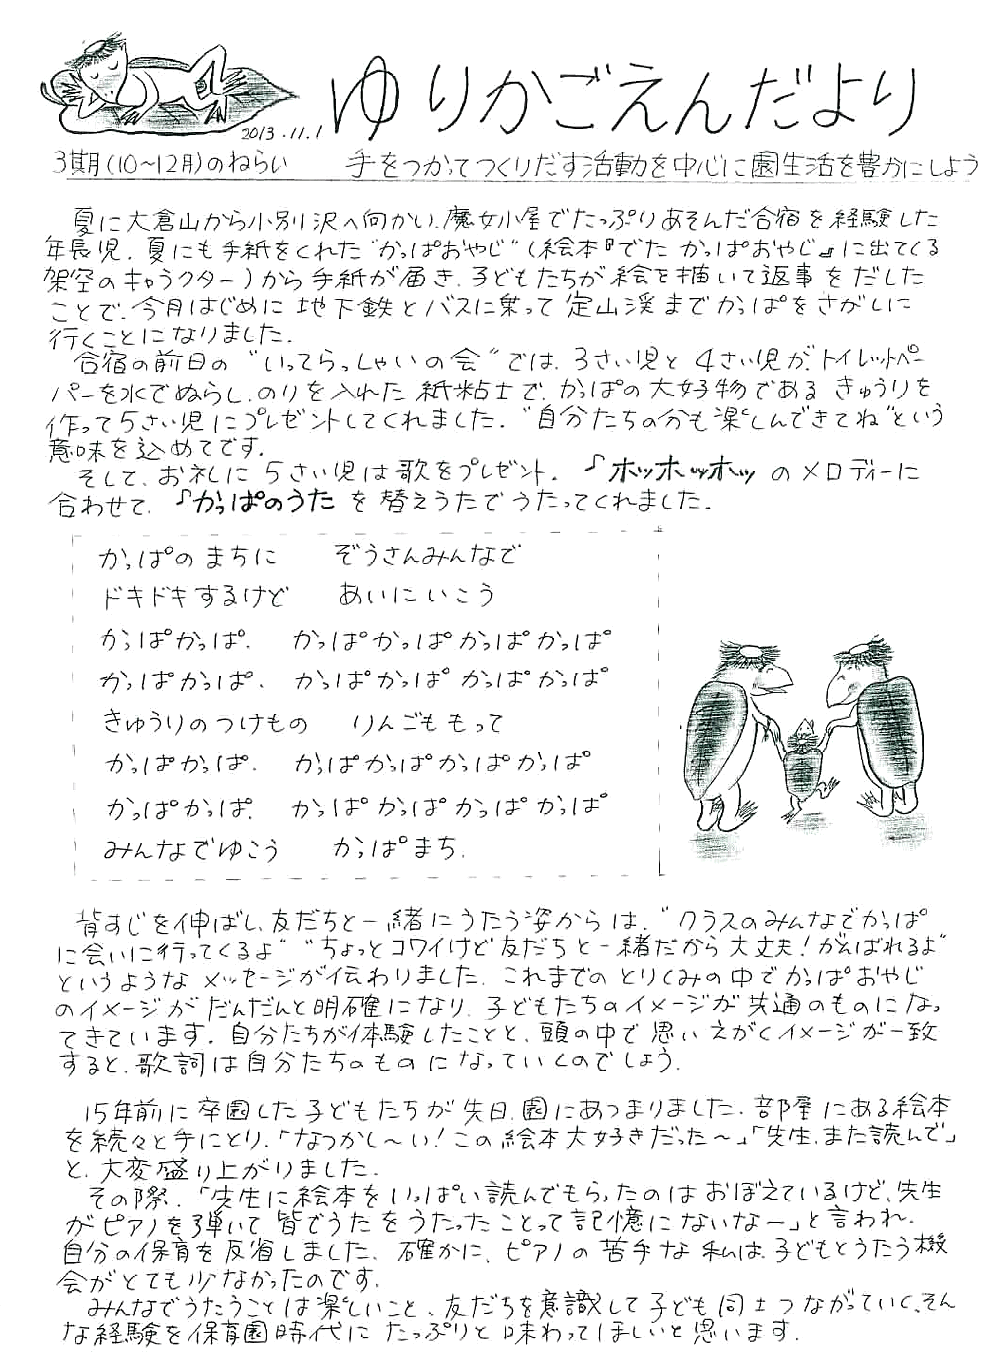 ゆりかごえんだより
2013.11.1
3期(10～12月)のねらい 手をつかってつくりだす活動を中心に園生活を豊かにしよう
夏に大倉山から小別沢へ向かい、魔女小屋でたっぷりあそんだ合宿を経験した
年長児。夏にも手紙をくれた"かっぱおやじ"(絵本『でた かっぱおやじ』に出てくる
架空のキャラクター)から手紙が届き、子どもたちが絵を描いて返事をだした
ことで、今月はじめに地下鉄とバスに乗って定山渓までかっぱをさがしに
行くことになりました。
合宿の前日の"いってらっしゃいの会"では、3さい児と4さい児が、トイレットペー
パーを水でぬらし、のりを入れた紙粘土で、かっぱの大好物であるきゅうりを
作って5さい児にプレゼントしてくれました。"自分たちの分も楽しんできてね"という
意味を込めてです。
そして、お礼に5さい児は歌をプレゼント。『ホッホッホッ』のメロディーに
合わせて、『かっぱのうた』を替えうたでうたってくれました。
かっぱのまちに ぞうさんみんなで
ドキドキするけど あいにいこう
かっぱかっぱ、 かっぱかっぱかっぱかっぱ
かっぱかっぱ、 かっぱかっぱかっぱかっぱ
きゅうりのつけもの りんごももって
かっぱかっぱ、 かっぱかっぱかっぱかっぱ
かっぱかっぱ、 かっぱかっぱかっぱかっぱ
みんなでゆこう かっぱまち。
背すじを伸ばし、友だちと一緒にうたう姿からは、"クラスのみんなでかっぱ
に会いに行ってくるよ""ちょっとコワイけど友だちと一緒だから大丈夫!がんばれるよ"
というようなメッセージが伝わりました。これまでのとりくみの中でかっぱおやじ
のイメージがだんだんと明確になり、子どもたちのイメージが共通のものになっ
てきています。自分たちが体験したことと、頭の中で思いえがくイメージが一致
すると、歌詞は自分たちのものになっていくのでしょう。
15年前に卒園した子どもたちが先日、園にあつまりました。部屋にある絵本
を続々と手にとり、「なつかし～い!この絵本大好きだった～」「先生、また読んで」
と、大変盛り上がりました。
その際、「先生に絵本をいっぱい読んでもらったのはおぼえているけど、先生
がピアノを弾いて皆でうたをうたったことって記憶にないなー」と言われ、
自分の保育を反省しました。確かに、ピアノの苦手な私は、子どもとうたう機
会がとても少なかったのです。
みんなでうたうことは楽しいこと、友だちを意識して子ども同士つながっていく、そん
な経験を保育園時代にたっぷりと味わってほしいと思います。